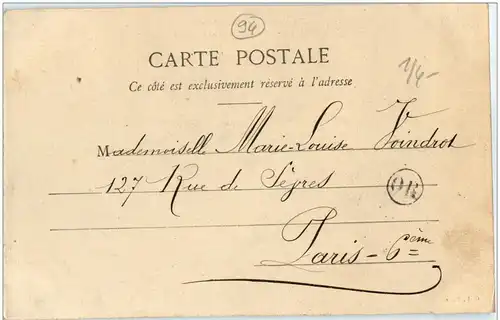 94
CARTE POSTALE
1/4-
Ce côté est exclusivement réservé à l'adresse
Mademoiselle Marie-Louise Voindrot
127 Rue de Sèvres
OR
Paris - 6ème